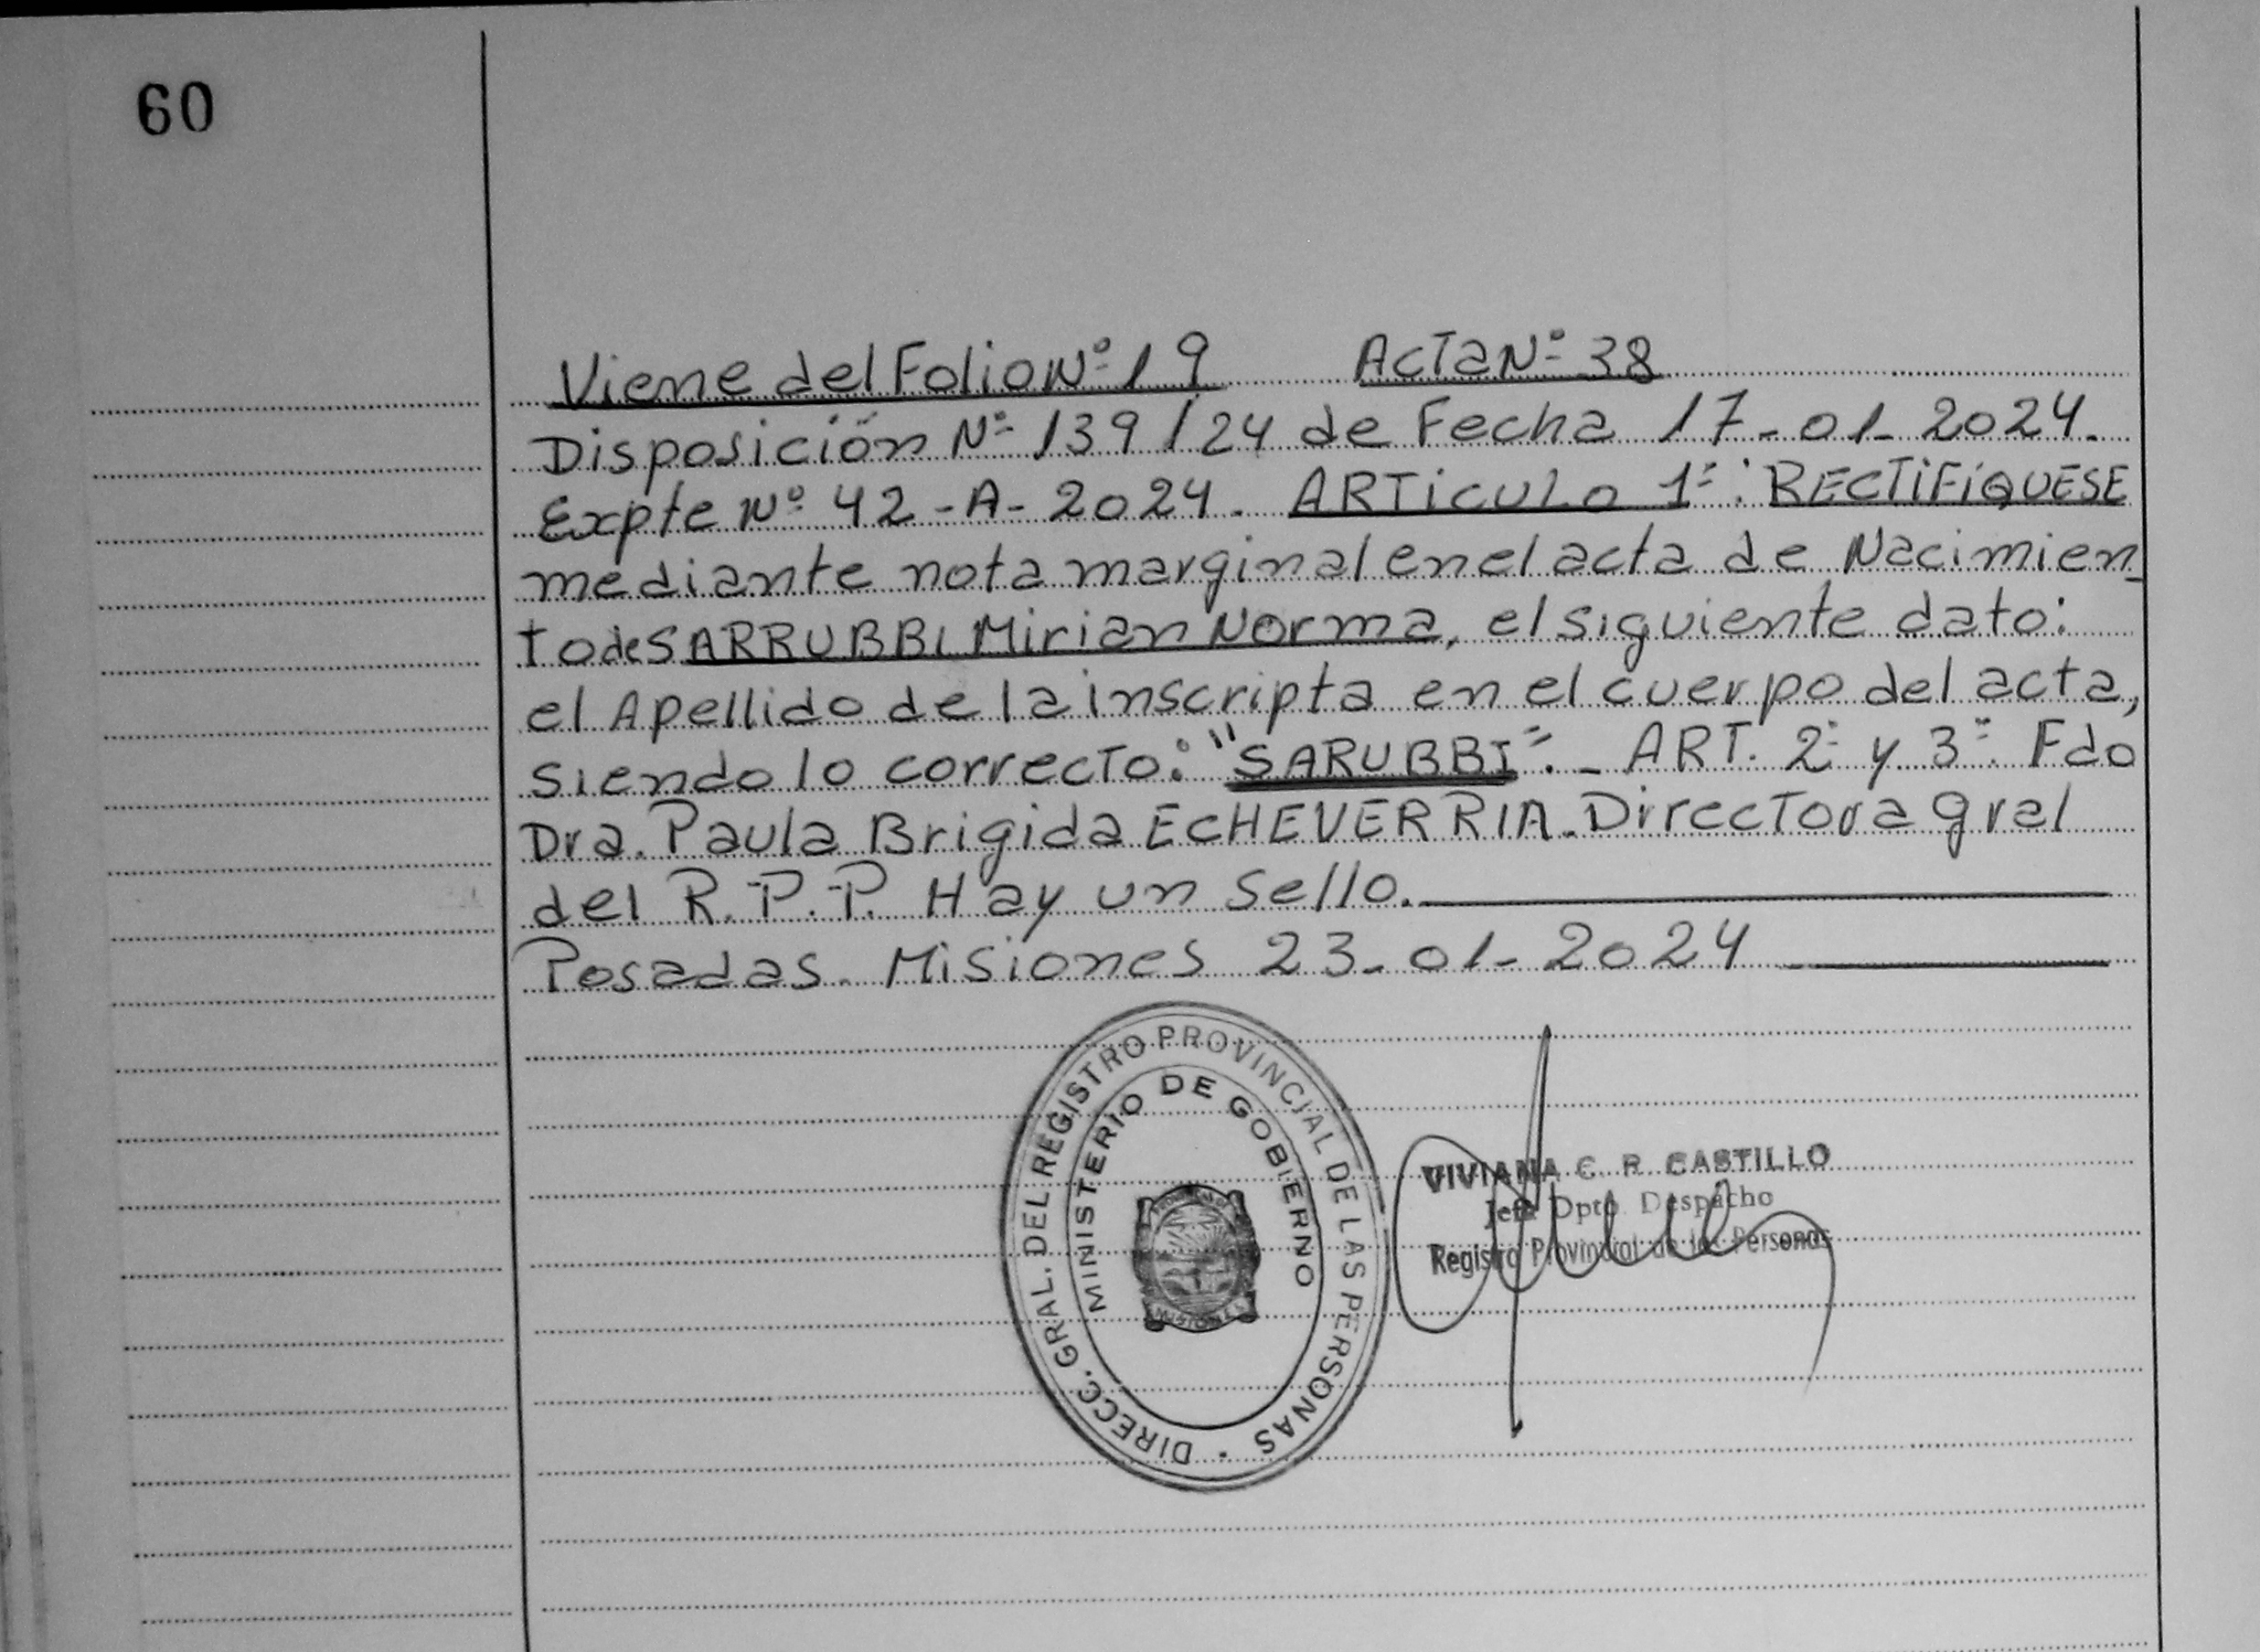 60
Viene del Folio Nº 19 Acta Nº 38
Disposición Nº 139/24 de Fecha 17-01-2024.
Expte Nº 42-A-2024. ARTiCULO 1º: RECTiFiQUESE
mediante nota marginal en el acta de Nacimien-
to de SARRUBBI Mirian Norma, el siguiente dato:
el Apellido de la inscripta en el cuerpo del acta,
siendo lo correcto: "SARUBBI".- ART. 2º y 3º. Fdo
Dra. Paula Brigida ECHEVERRIA. Directora gral
del R.P.P. Hay un sello.
Posadas. Misiones 23-01-2024
DIRECC. GRAL. DEL REGISTRO PROVINCIAL DE LAS PERSONAS
MINISTERIO DE GOBIERNO
MISIONES
VIVIANA C. R. CASTILLO
Jefa Dpto Despacho
Registro Provincial de las Personas